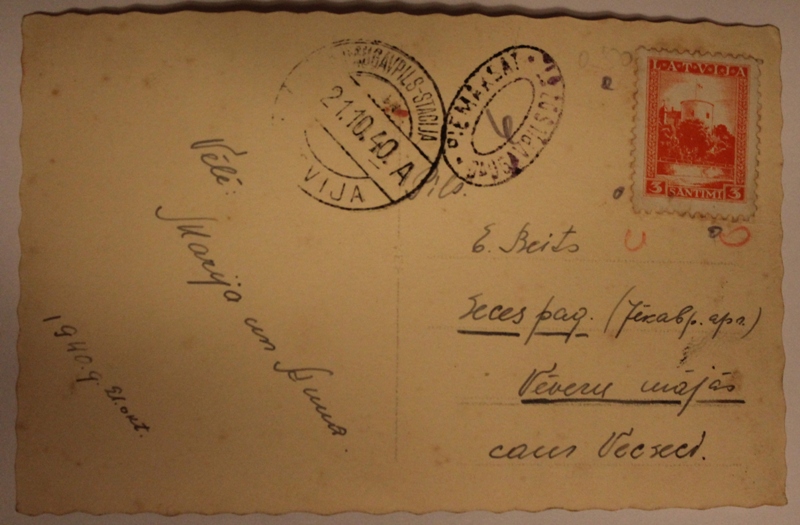 DAUGAVPILS-STACIJA
21.10.40. A
VIJA
PIEMAKSĀT
6
DAUGAVPILS
LATVIJA
3 SANTIMI 3
Vēlē:
Marija un Anna.
1940.g 21.okt.
E. Beits
Seces pag. (Jēkabp. apr.)
Vēveru mājās
caur Vecseci.